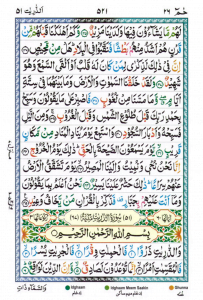 الذّٰریٰت ٥١
٥٢١
حٰمٓ ٢٦
لَهُمْ مَّا يَشَآءُوْنَ فِيْهَا وَلَدَيْنَا مَزِيْدٌ ۝ وَكَمْ اَهْلَكْنَا قَبْلَهُمْ مِّنْ
قَرْنٍ هُمْ اَشَدُّ مِنْهُمْ بَطْشًا فَنَقَّبُوْا فِى الْبِلَادِ ؕ هَلْ مِنْ مَّحِيْصٍ ۝
اِنَّ فِىْ ذٰلِكَ لَذِكْرٰى لِمَنْ كَانَ لَهٗ قَلْبٌ اَوْ اَلْقَى السَّمْعَ وَهُوَ
شَهِيْدٌ ۝ وَلَقَدْ خَلَقْنَا السَّمٰوٰتِ وَالْاَرْضَ وَمَا بَيْنَهُمَا فِىْ سِتَّةِ
اَيَّامٍ ۖ وَّمَا مَسَّنَا مِنْ لُّغُوْبٍ ۝ فَاصْبِرْ عَلٰى مَا يَقُوْلُوْنَ وَسَبِّحْ
بِحَمْدِ رَبِّكَ قَبْلَ طُلُوْعِ الشَّمْسِ وَقَبْلَ الْغُرُوْبِ ۝ وَمِنَ الَّيْلِ
فَسَبِّحْهُ وَاَدْبَارَ السُّجُوْدِ ۝ وَاسْتَمِعْ يَوْمَ يُنَادِ الْمُنَادِ مِنْ مَّكَانٍ
قَرِيْبٍ ۝ يَّوْمَ يَسْمَعُوْنَ الصَّيْحَةَ بِالْحَقِّ ؕ ذٰلِكَ يَوْمُ الْخُرُوْجِ ۝
اِنَّا نَحْنُ نُحْىٖ وَنُمِيْتُ وَاِلَيْنَا الْمَصِيْرُ ۝ يَوْمَ تَشَقَّقُ الْاَرْضُ
عَنْهُمْ سِرَاعًا ؕ ذٰلِكَ حَشْرٌ عَلَيْنَا يَسِيْرٌ ۝ نَحْنُ اَعْلَمُ بِمَا يَقُوْلُوْنَ
وَمَآ اَنْتَ عَلَيْهِمْ بِجَبَّارٍ ۗ فَذَكِّرْ بِالْقُرْاٰنِ مَنْ يَّخَافُ وَعِيْدِ ۝
بِسْمِ اللّٰهِ الرَّحْمٰنِ الرَّحِيْمِ
وَالذّٰرِيٰتِ ذَرْوًا ۝ فَالْحٰمِلٰتِ وِقْرًا ۝ فَالْجٰرِيٰتِ يُسْرًا ۝
فَالْمُقَسِّمٰتِ اَمْرًا ۝ اِنَّمَا تُوْعَدُوْنَ لَصَادِقٌ ۝ وَّاِنَّ الدِّيْنَ لَوَاقِعٌ ۝
وَالسَّمَآءِ ذَاتِ